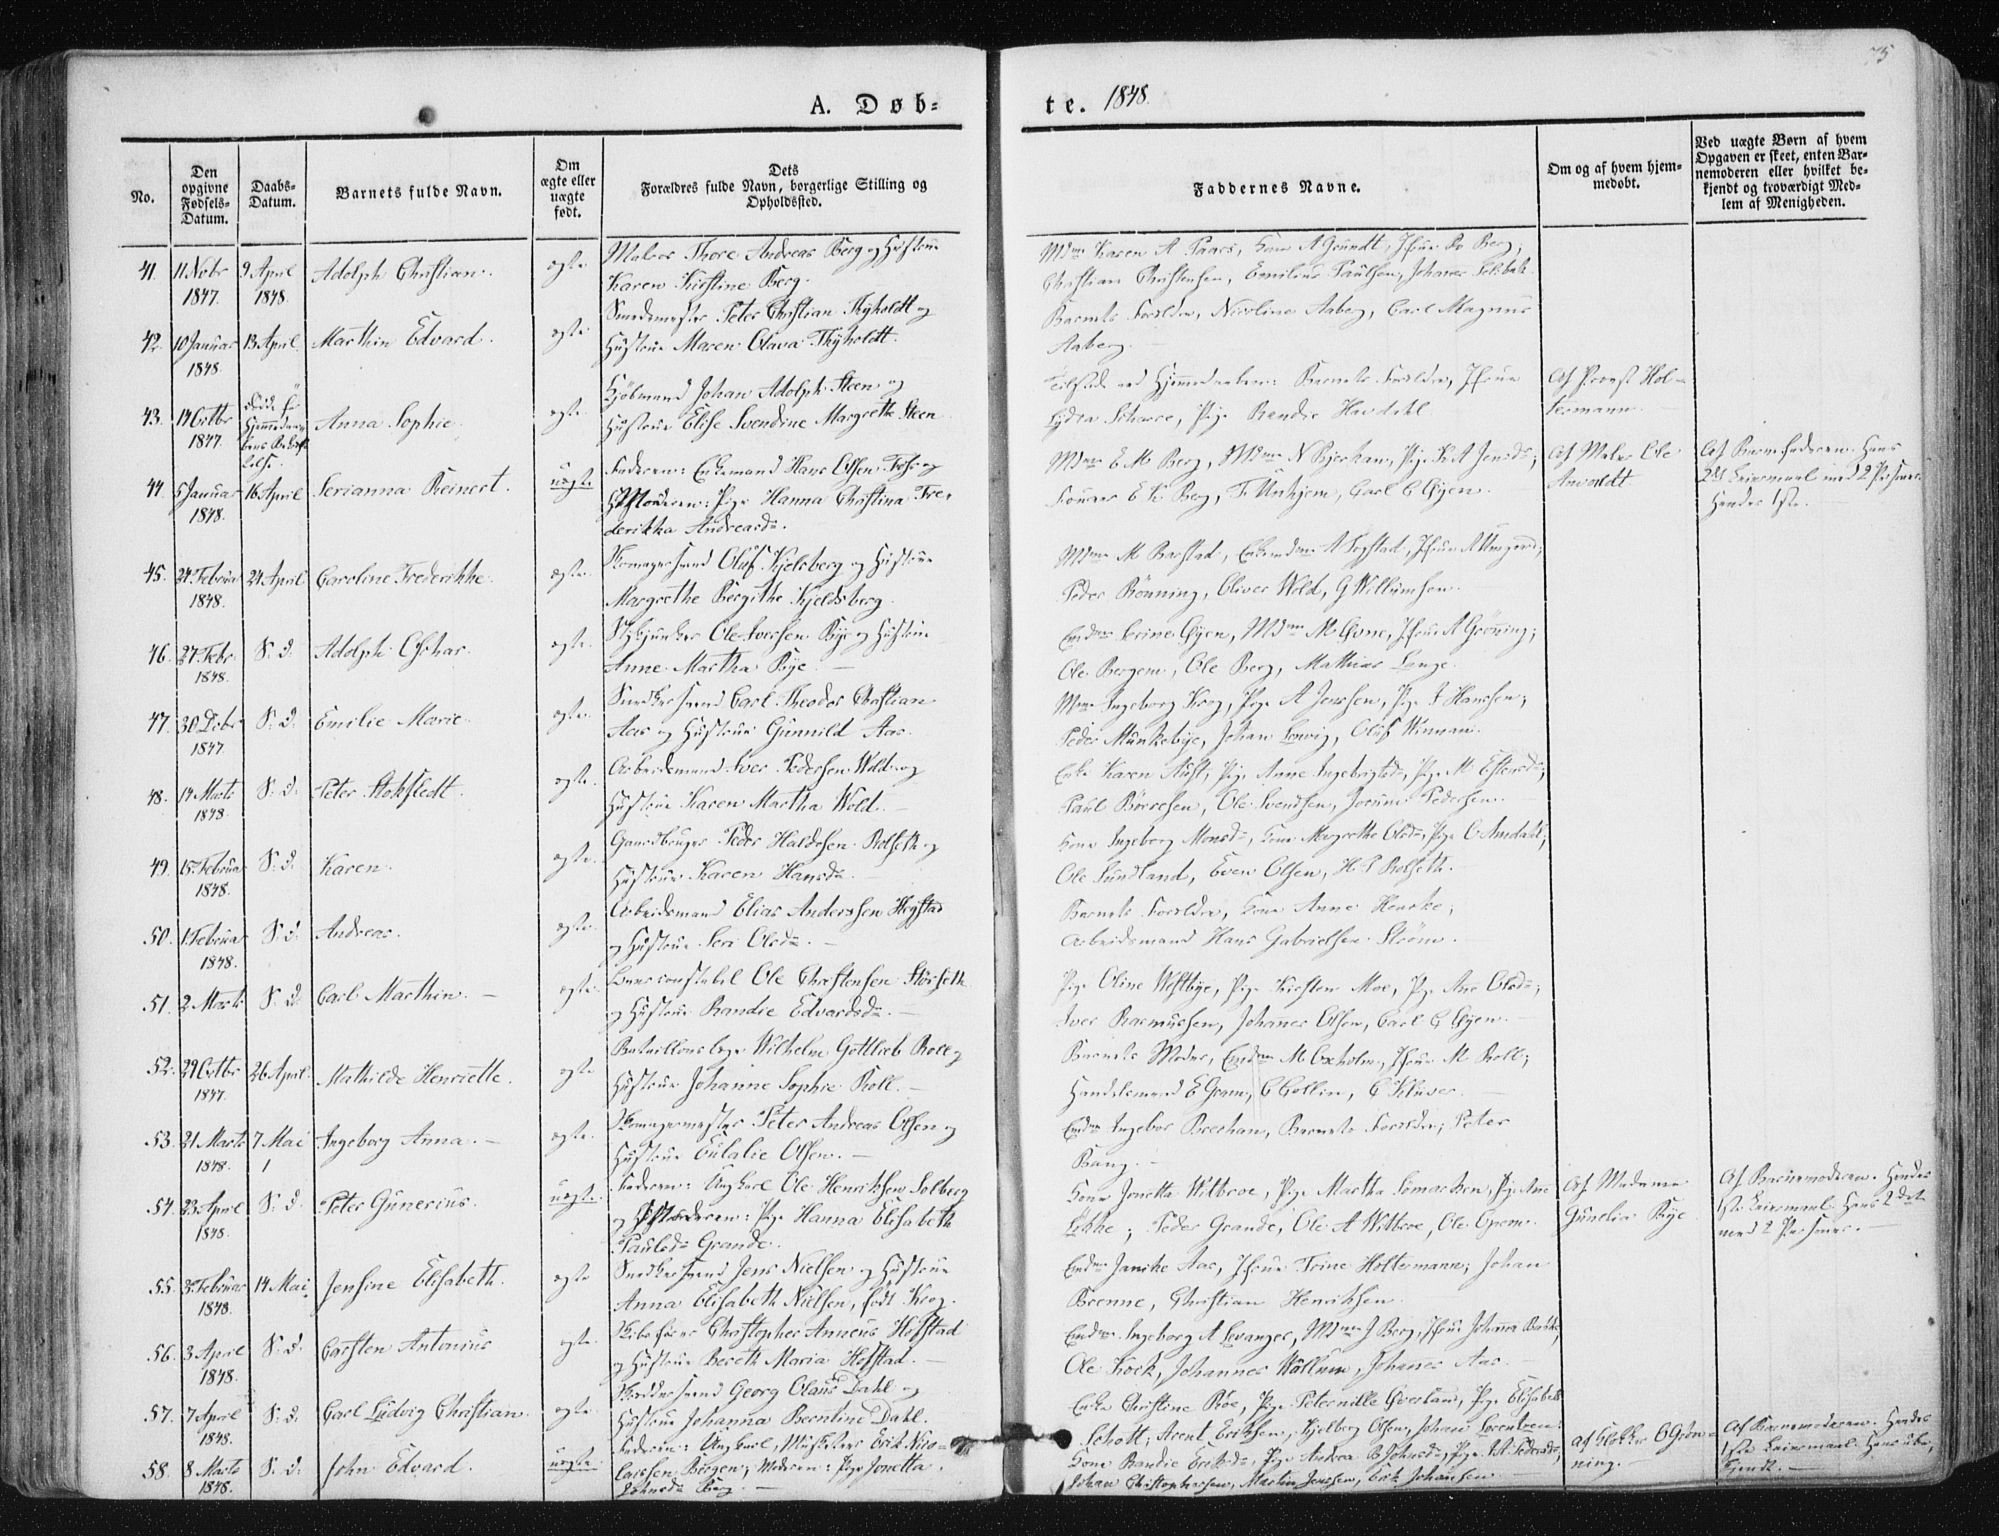 75
A. Døb-
te. 1848.
No.
Den opgivne Fødsels-Datum.
Daabs-Datum.
Barnets fulde Navn.
Om ægte eller uægte født.
Dets Forældres fulde Navn, borgerlige Stilling og Opholdssted.
Faddernes Navne.
Om og af hvem hjemmedøbt.
Ved uægte Børn af hvem Opgaven er skeet, enten Barnemoderen eller hvilket bekjendt og troværdigt Medlem af Menigheden.
41. 11 Novbr 1847. 9 April 1848. Adolph Christian. ægte
Maler Thore Andreas Berg og Hustrue
Karen Kirstine Berg.
Christian Christensen, Johannes
42. 10 Januar 1848. 13 April Marthin Edvard. ægte
Smedmester Peter Christian Thyholdt og
Hustrue Maren Olava Thyholdt.
Barnets Forældre, Nicoline Aaberg, Carl Magnus
Aaberg.
43. 14 Octbr 1847. Anna Sophie. ægte
Kjøbmand Johan Adolph Steen og
Hustrue Elise Svendine Margrethe Steen
Barnets Forældre, Jfrue
Lydia Pige
Af Provst Holtermann.
44. 5 Januar 1848. 16 April Serianna Reinert. uægte
Faderen: Enkemand Hans Olsen og
Moderen: Pige Hanna Christina Frederikka Andreasdr.
Mdme E M Berg, Mdme N Bjerkan, Pige
E K Berg, F. Unhjem, Carl C Øyen.
Af Maler Ole
Af Barnefaderen. Hans
2det Leiermaal med 2 Personer.
Hendes 1ste.
45. 24 Februar 1848. 24 April Caroline Frederikke. ægte.
Skomagersvend Oluf Kjelsberg og Hustrue
Margrethe Bergithe Kjeldsberg.
Mdme M Barstad,
Peder Rönning, Oliver Wold, G Willumsen.
46. 27 Febr. 1848. S. d. Adolph Oschar. ægte.
Stykjunker Ole Iversen Bye og Hustrue
Anne Martha Bye.
Trine Øyen, Jfrue A Gröning;
Ole Bergem, Ole Berg, Mathias Lange.
47. 30 Debr 1847 S. d. Emilie Marie. ægte.
Snedkersvend Carl Theodor Christian
Aas og Hustrue Gunnild Aas.
Ingeborg Krog, Pige A Jenssen, Pige Hanssen;
Peder Munkebye, Johan Oluf Winnan.
48. 14 Marts 1848 S. d. Peter Stokstedt. ægte.
Arbeidsmand Iver Pedersen Wold og
Hustrue Karen Martha Wold.
Enke Karen Pige Anne Ingebrigtsdr, Pige M
Paul Börresen, Ole Svendsen, Pedersen.
49. 15 Februar 1848. S. d. Karen. ægte.
Gaardbruger Peder Haldosen Rolseth og
Hustrue Karen Hansdr.
Kone Ingeborg Monsdr, Kone Margrethe Olsdr, Pige
Ole Sundland, Even Olsen, H. P. Rolseth.
50. 1 Februar 1848. S. d. Andreas. ægte.
Arbeidsmand Elias Anderssen Hegstad
og Hustrue Seri Olsdr.
Barnets Forældre, Kone Anne
Arbeidsmand Hans Gabrielsen Ström.
51. 2 Marts S. d. Carl Marthin. ægte.
Ole Christensen Störseth
og Hustrue Randie Edvardsdr.
Pige Oline Westbye, Pige Kirsten Moe, Pige Ane Olsdr;
Iver Rasmussen, Johannes Olsen, Carl C Øyen.
52. 29 Octbr 1847. 26 April Mathilde Henriette. ægte.
Bataillonslæge Wilhelm Gottlieb Roll og
Hustrue Johanne Sophie Roll.
Barnets Moder, M Oxholm, Jfrue M Roll;
Handelsmand E Gram, C Collin, C Klüver.
53. 21 Marts 1848. 7 Mai Ingeborg Anna. ægte.
Skomagermester Peter Andreas Olsen og
Hustrue Eulalie Olsen.
Ingebor Brechan, Barnets Forældre; Peter
Bang.
54. 23 April 1848. S. d. Peter Gunerius. uægte.
Faderen: Ungkarl Ole Henriksen Solberg
og Moderen: Pige Hanna Elisabeth
Paulsdr Grande.
Kone Jonetta Witbroe, Pige Martha Pige Ane
Lykke; Peder Grande, Ole A Witbroe, Ole
Af Madame
Gunelia Bye
Af Barnemoderen. Hendes
1ste Leiermaal. Hans 2det
med 2 Personer.
55. Februar 1848. 14 Mai Jensine Elisabeth. ægte
Snedkersvend Jens Nielsen og Hustrue
Anna Elisabeth Nielsen, født Krog.
Janike Aas, Jfrue Trine Holtermann; Johan
Brenne, Christian Henriksen.
56. 3 April 1848. S. d. Carsten Antonius ægte.
Christopher Anneus Hofstad
og Hustrue Bereth Maria Hofstad.
Ingeborg A Levanger, Mdme J Berg, Jfrue Johanna
Ole Kock, Johannes Wullum, Johannes Aas.
57. 7 April 1848. S. d. Carl Ludvig Christian. ægte.
Georg Olaus Dahl og
Hustrue Johanna Berntine Dahl.
Enke Christine Röe, Pige Peternille Overland, Pige Elisabeth
Schott; Arent Eriksen, Kjelberg Olsen, Johan Lorentzen.
58. 8 Marts 1848. S. d. John Edvard. uægte.
Faderen: Ungkarl, Musketeer Erik Nicolaissen Börgen; Moderen: Pige Jonetta
Johnsdr Berg.
Kone Randie Eriksdr, Pige Andrea B Johnsdr, Pige Pedersdr,
Johan Christophersen, Martin Jenssen, Erik Johansen.
Af Klokker O Grönning.
Af Barnemoderen. Hendes
1ste Leiermaal. Hans ubekjendt.